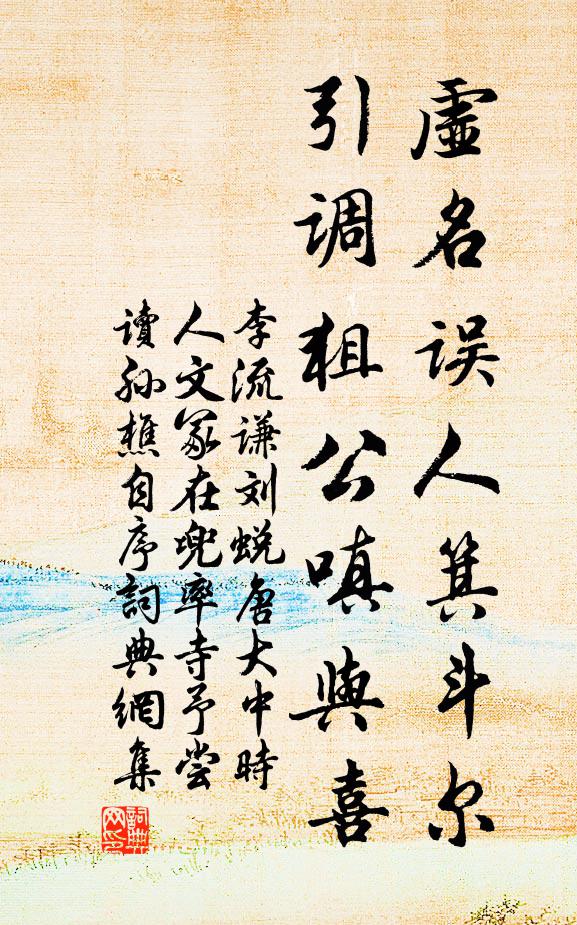 虚名误人箕斗尔
引调狙公嗔與喜
李流谦刘蜕唐大中時
人文冢在兜率寺予尝
讀孙樵自序詞典網集
詞典
网印